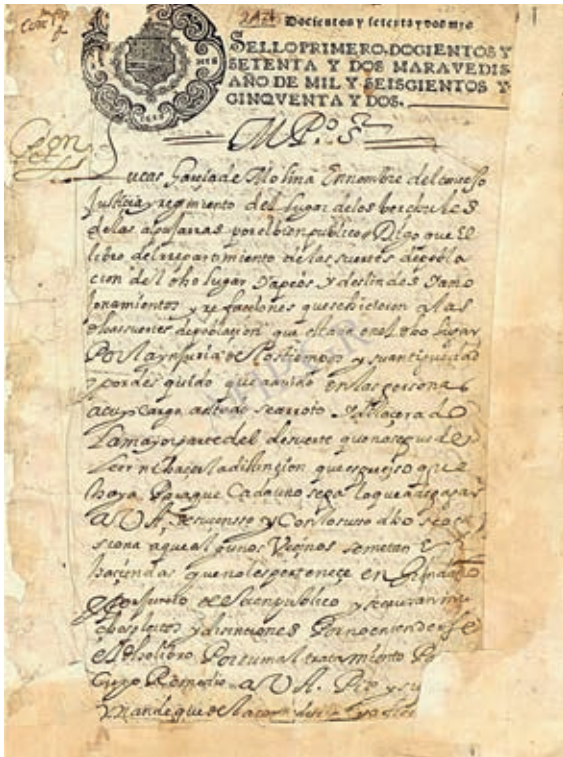 Docientos y setenta y dos mrs
SELLO PRIMERO, DOCIENTOS Y
SETENTA Y DOS MARAVEDIS,
AÑO DE MIL Y SEISCIENTOS Y
CINQVENTA Y DOS.
M. P.o S.r
Lucas Garcia de Molina En nombre del concejo
Justicia y regimiento del lugar de los berchules
de las alpujarras por el bien publico = Digo que El
libro del repartimiento de las suertes de pobla
cion del dho lugar y apeos y deslindes y amo
jonamientos y que se hicieron a las
dhas suertes de poblacion que esta en el dho lugar
Por la ynjuria de los tiempos y su antiguedad
y por descuido que avido en las personas
a cuyo cargo a estado se a roto y
La mayor parte del de suerte que no se puede
leer ni hacer la distincion que es preciso que
haya Para que Cada uno sepa lo que a de pagar
a V A, de su censso y Con lo suso dho se oca
siona a que algunos Vecinos se metan En
haciendas que no les pertenece en
de bien publico y se causan mu
chos pleitos y disenciones Por no entenderse
el dho libro Por su mal tratamiento Pa
Cuyo Remedio = a V A. Pido y su
mande que se